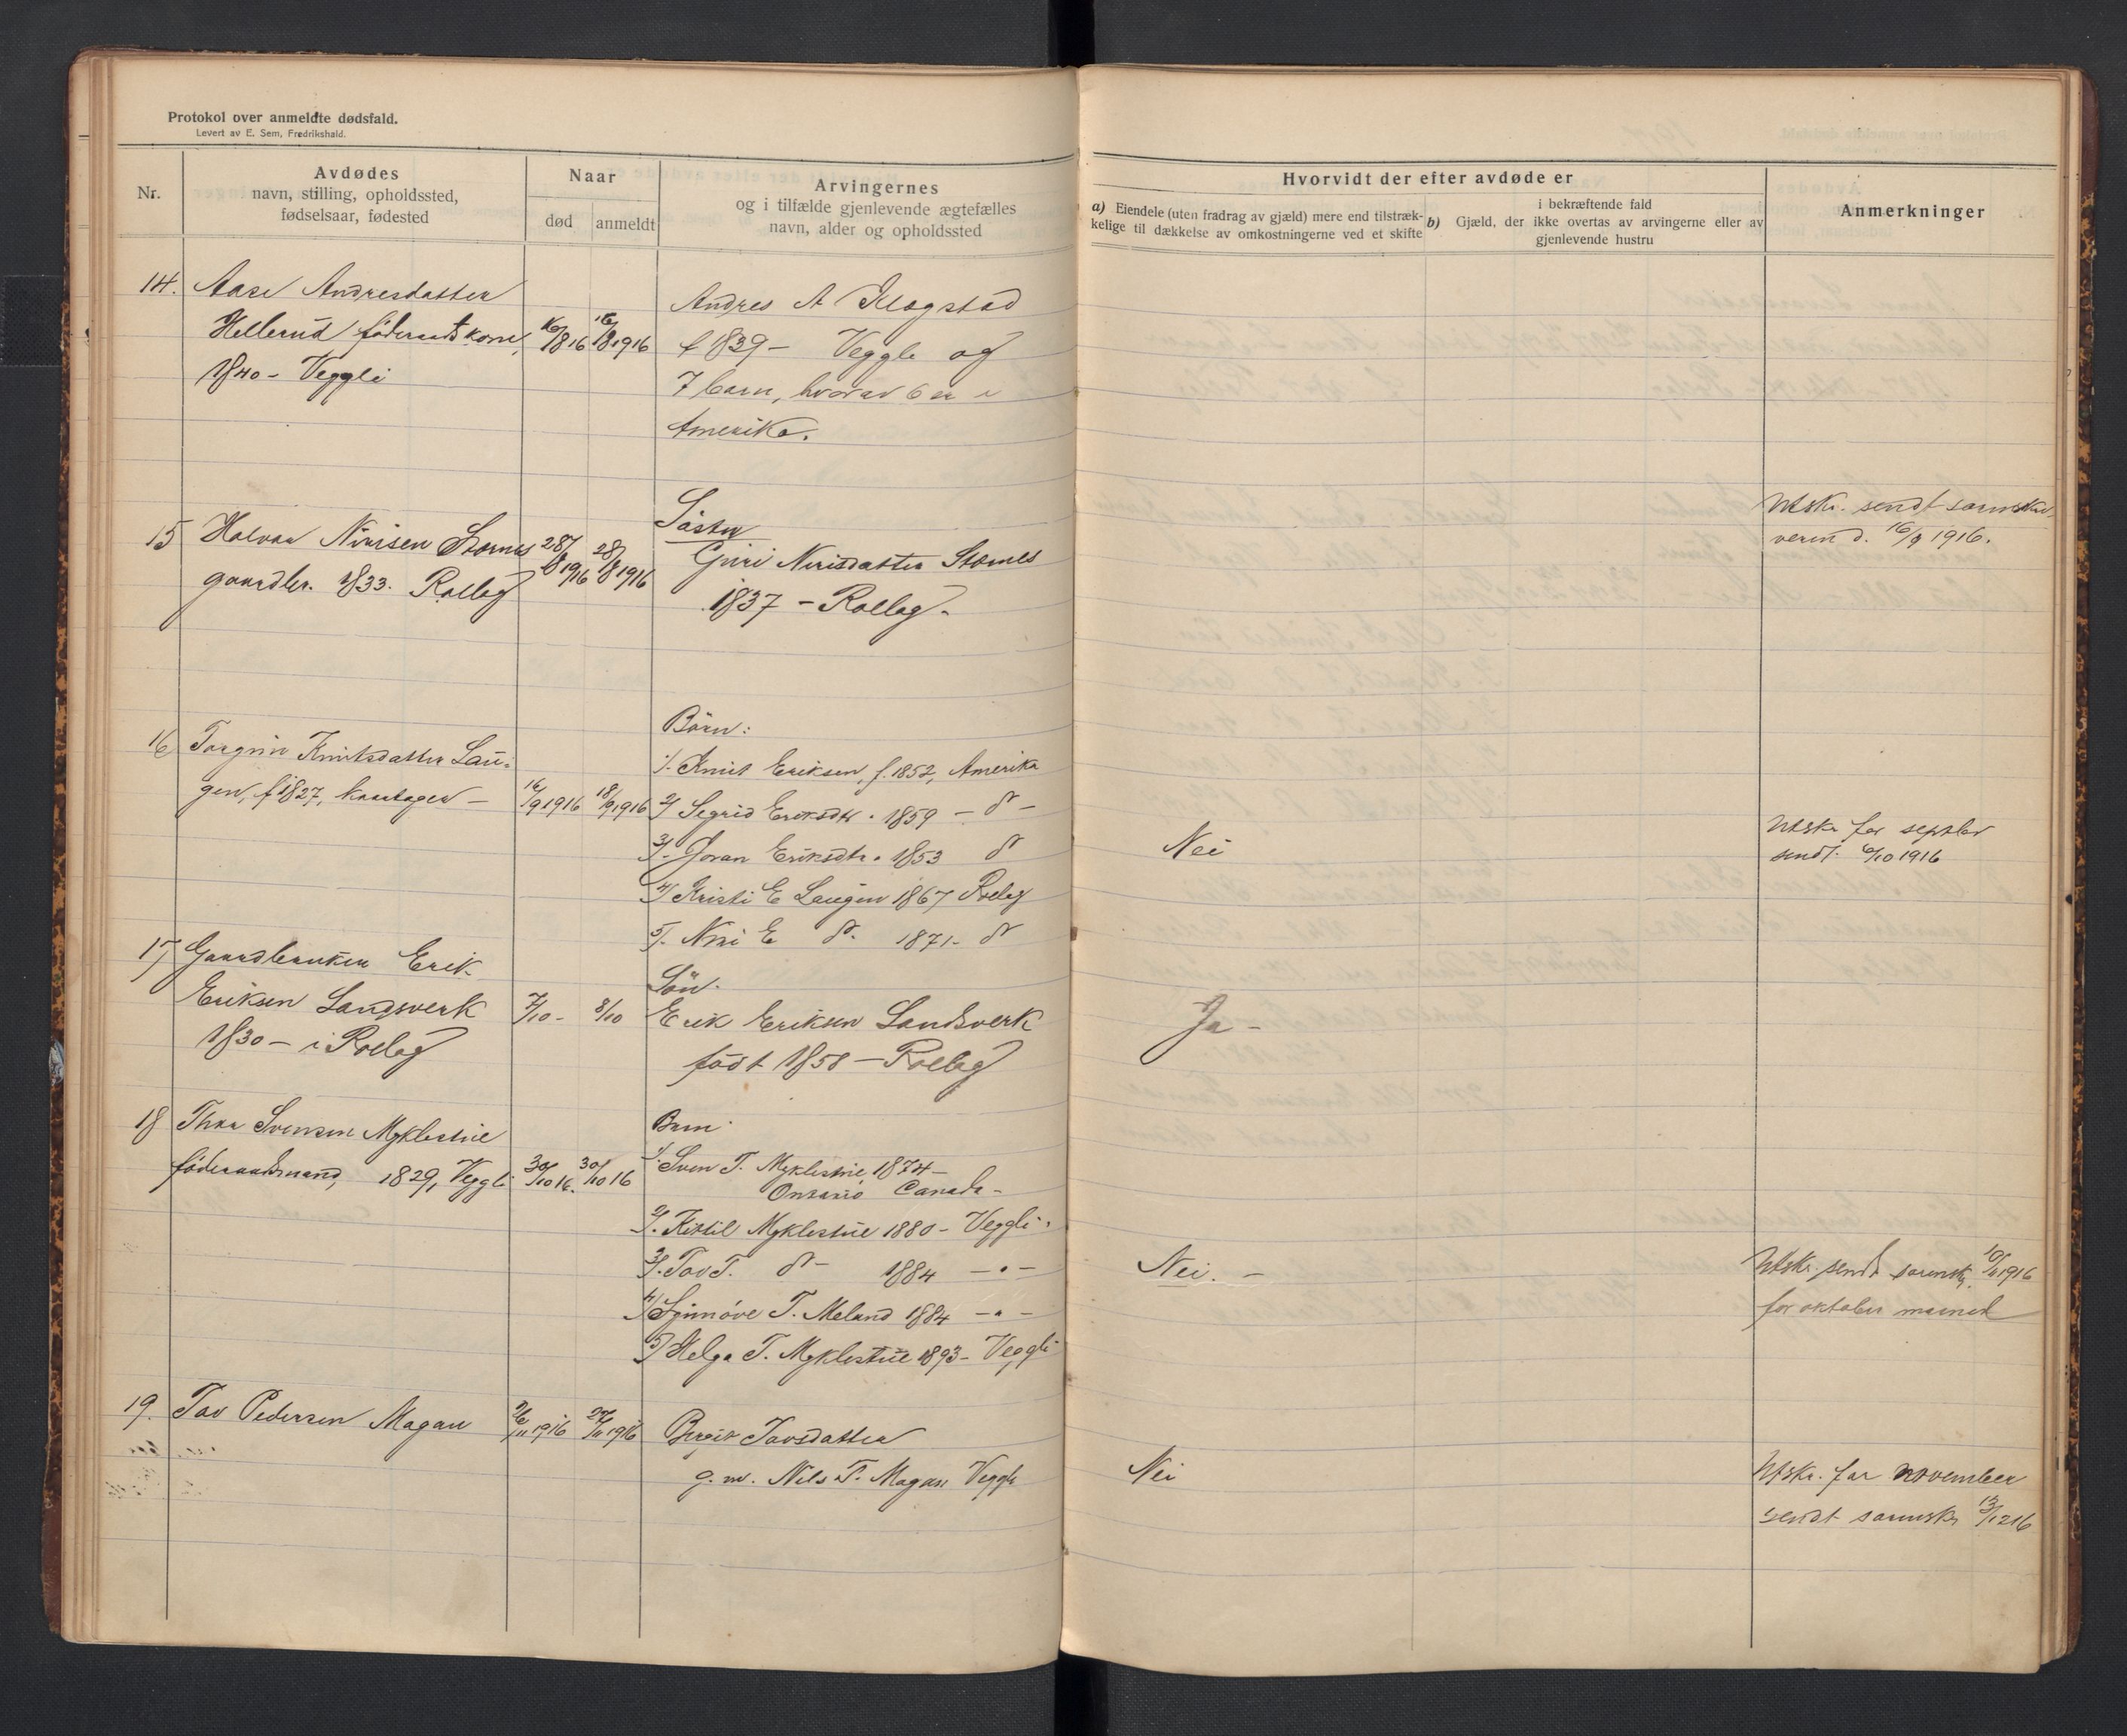 Protokol over anmeldte dødsfald.
Levert av E. Sem, Fredrikshald.
Nr.
Avdødes
navn, stilling, opholdssted,
fødselsaar, fødested
Naar
død
anmeldt
Arvingernes
og i tilfælde gjenlevende ægtefælles
navn, alder og opholdssted
Hvorvidt der efter avdøde er
a) Eiendele (uten fradrag av gjæld) mere end tilstræk-
kelige til dækkelse av omkostningerne ved et skifte
i bekræftende fald
b) Gjæld, der ikke overtas av arvingerne eller av
gjenlevende hustru
Anmerkninger
14. Aase Andresdatter
Hellerud føderaadskone,
1840 - Veggli
16/8 16 16/8 1916
Andres A
f 1839 - Veggli og
7 barn, hvorav 6 er i
Amerika.
15 Halvor Nirisen Stornes
gaardbr. 1833. Rollag
28/8 1916 28/8 1916
Søster
Guri Nirisdatter Stornes
1837 - Rollag.
Utskr. sendt sorenskri-
veren d. 16/9 1916.
16 Torgrim Knutsdatter Lau-
gen, f 1827,
16/9 1916 18/9 1916
Børn:
1/. Knut Eriksen, f. 1852, Amerika
2/ Sigrid Eriksdtr. 1859 - do -
3/. Joran Eriksdtr. 1853 do
4/ Kristi E Laugen 1867 Rollag
5/. Niri E do. 1871 - do
Nei
Utskr for septbr
sendt 6/10 1916
17 Gaardbruker Erik
Eriksen Landsverk
1830 - i Rollag
7/10 - 8/10
Søn.
Erik Eriksen Landsverk
født 1858 - Rollag
Ja -
18 Thor Svensen Myklestue
føderaadsmand, 1829, Veggli
30/10 16. 30/10 16
Barn.
1/. Sven T. Myklestue, 1874 -
Ontario Canada -
2/. Kittil Myklestue 1880 - Veggli.
3/. Tov T. do - 1884 - " -
4/ Synnøve T. Meland 1884 - " -
5/ Helga T. Myklestue 1893 - Veggli
Nei. -
Utskr. sendt sorenskr. 10/11 1916
for oktober maaned
19. Tov Pedersen Magan
26/11 1916 27/11 1916
Birgit Tovsdatter
g. m. Nils T. Magan Veggli
Nei
Utskr. for november
sendt sorenskr 13/12 16